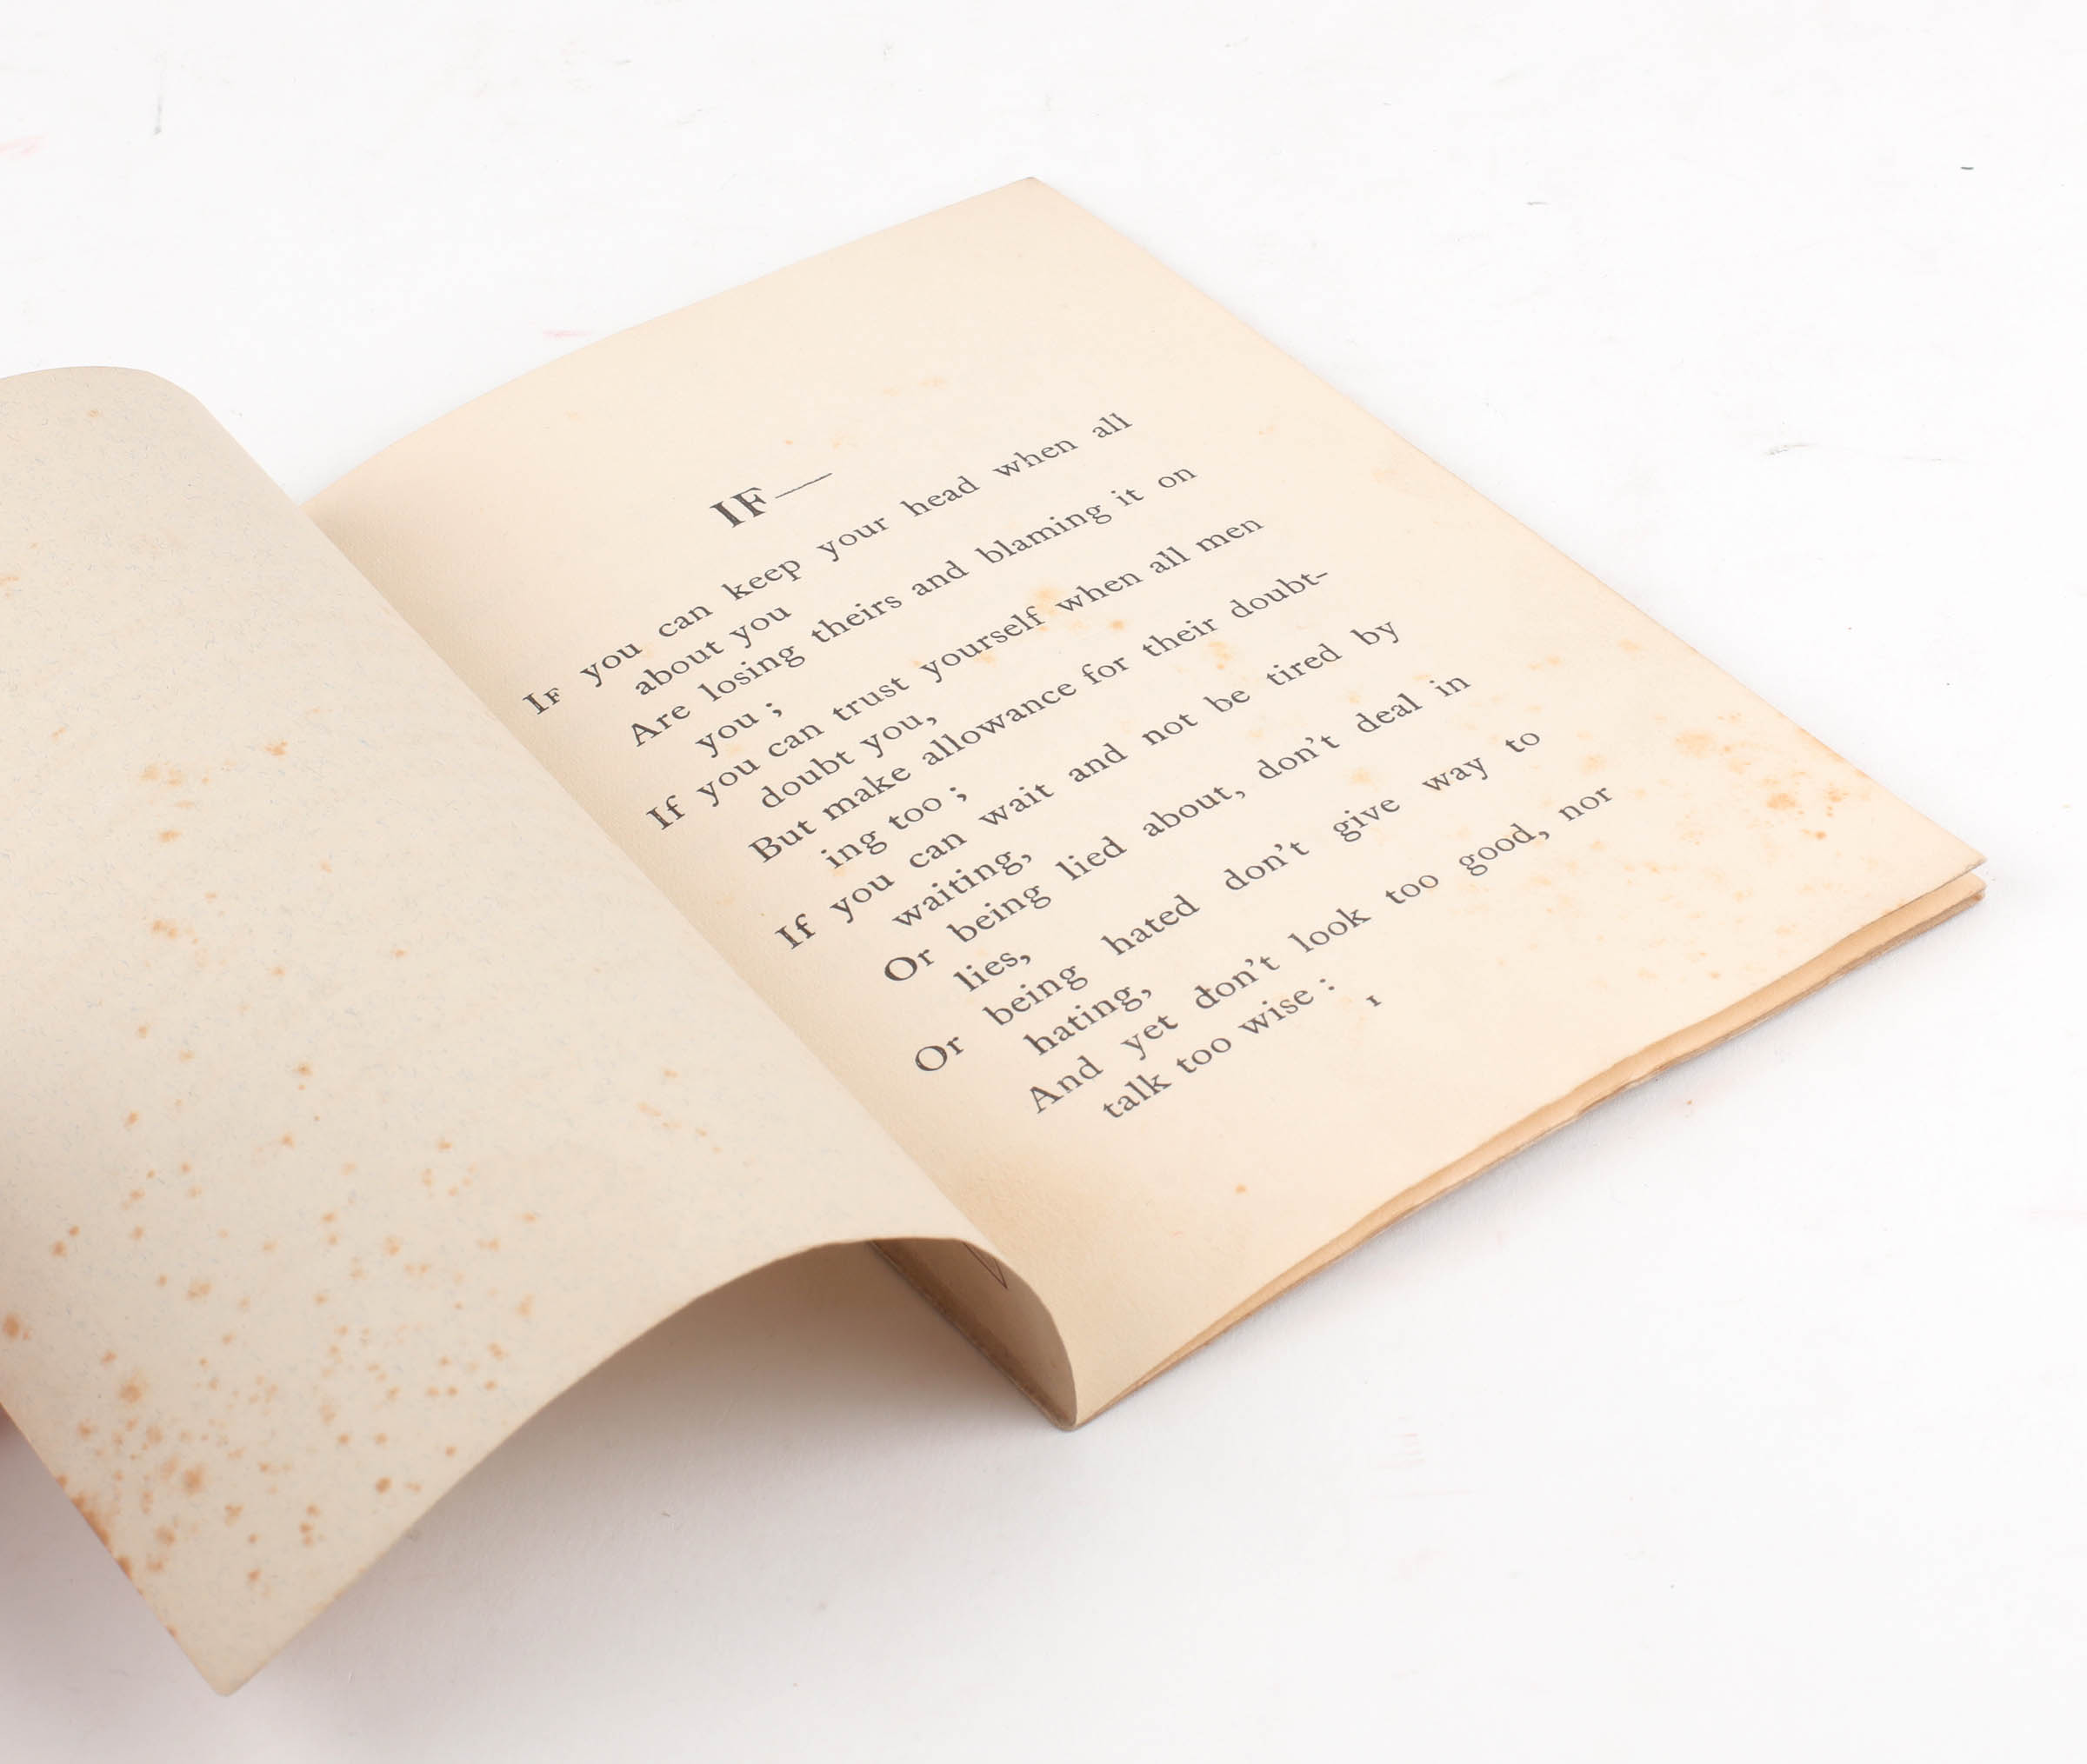 IF—
IF you can keep your head when all
about you
Are losing theirs and blaming it on
you ;
If you can trust yourself when all men
doubt you,
But make allowance for their doubt-
ing too ;
If you can wait and not be tired by
waiting,
Or being lied about, don't deal in
lies,
Or being hated don't give way to
hating,
And yet don't look too good, nor
talk too wise :
1